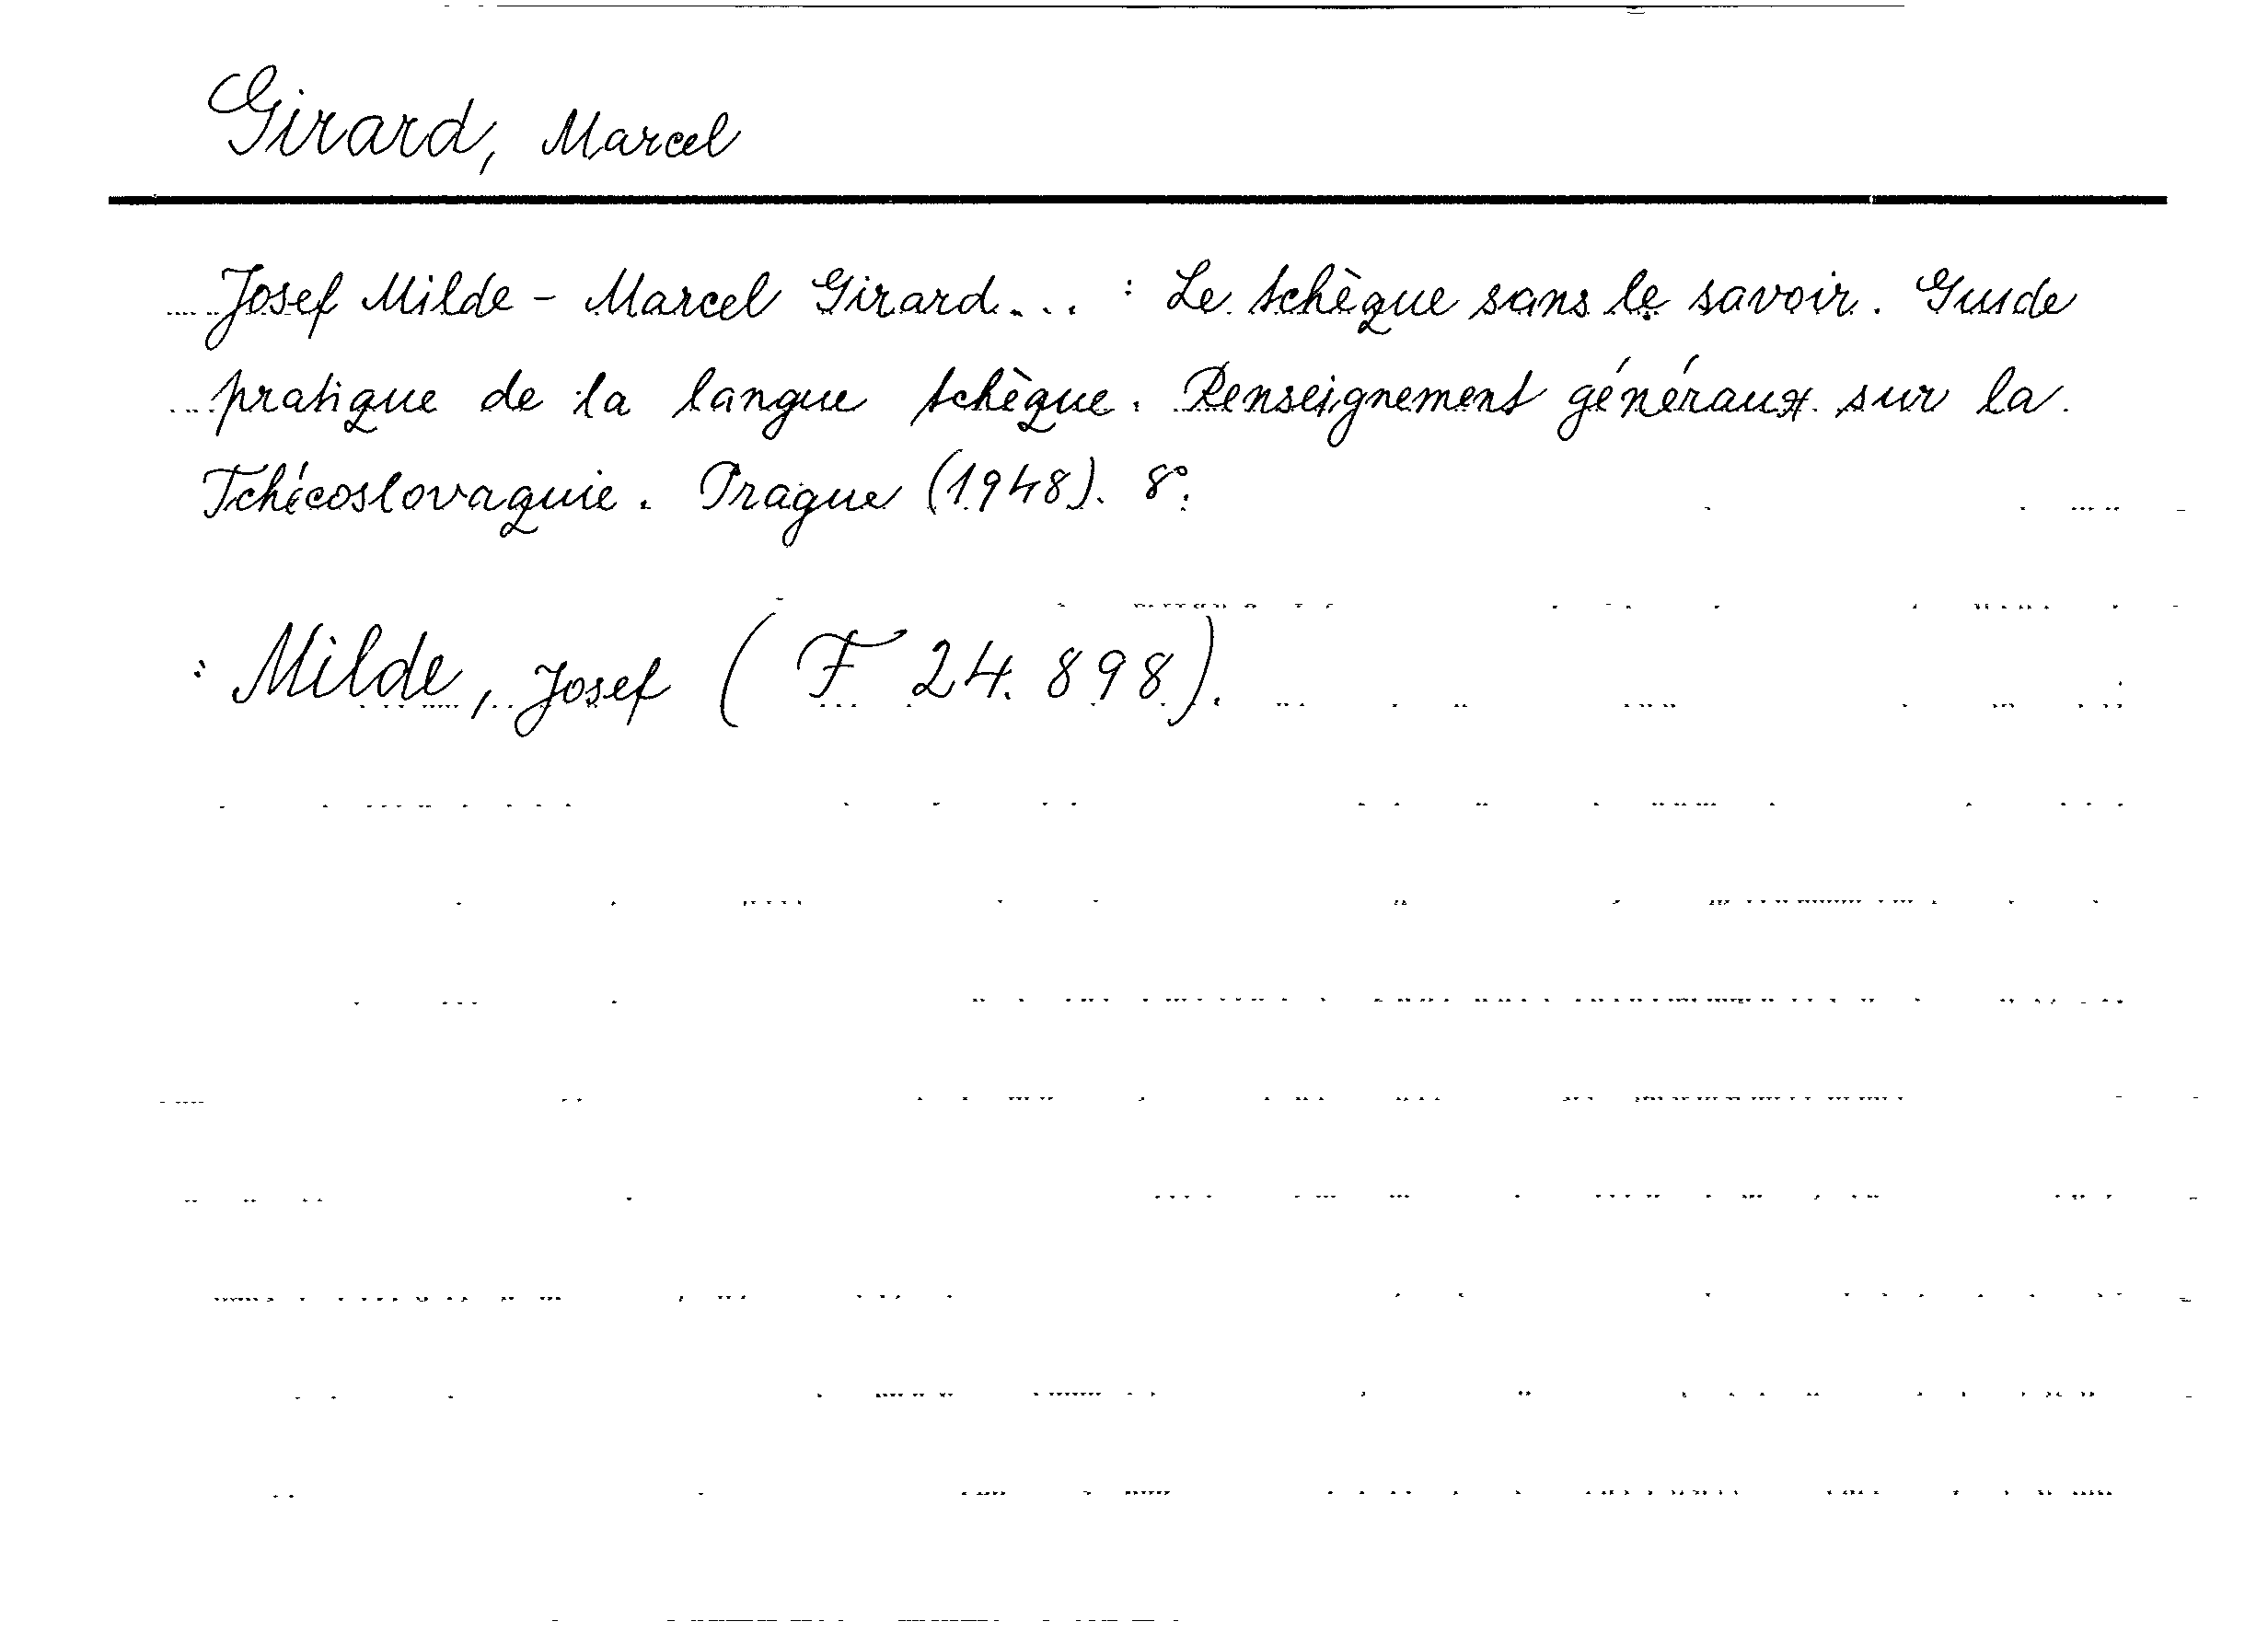 Girard, Marcel
Josef Milde - Marcel Girard... : Le tchèque sans le savoir. Guide
pratique de la langue tchèque. Renseignement généraux sur la
Tchécoslovaquie. Prague (1948). 8°.
: Milde, Josef ( F 24.898).